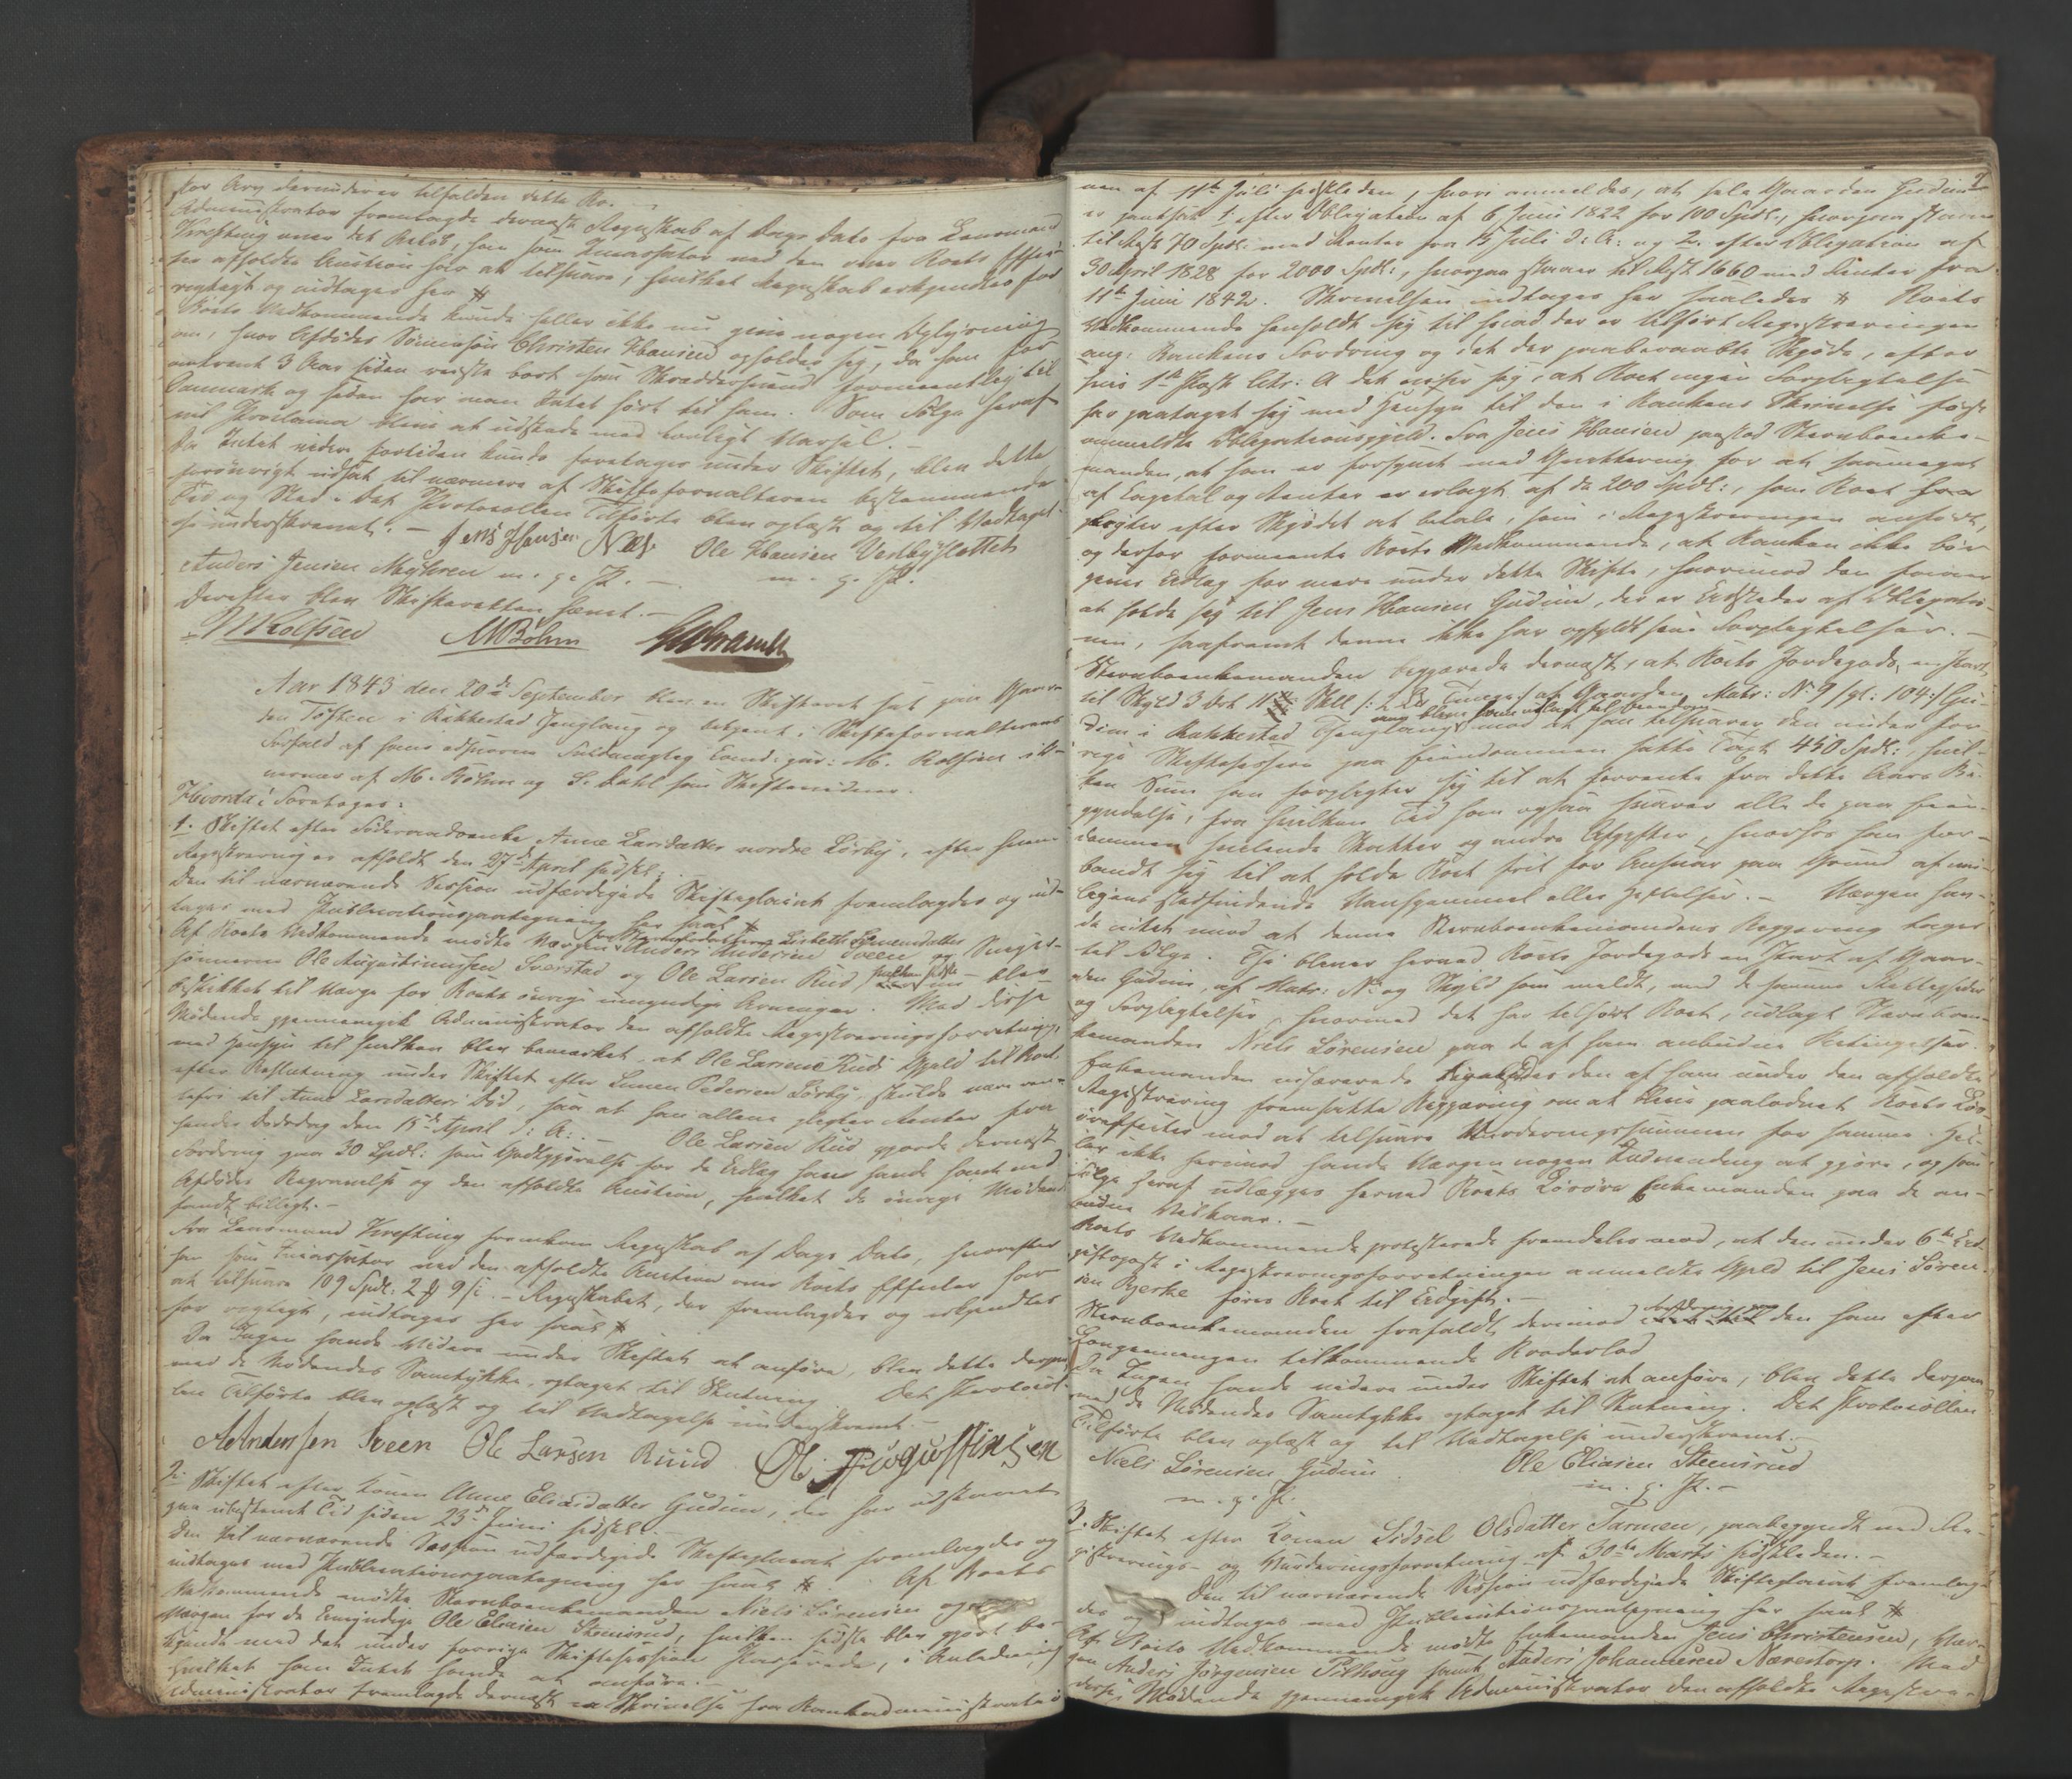 stor Arv derunder er tilfalden dette Bo. —
Administrator fremlagde dernæst Regnskab af Dags Dato fra Lensmand
Krefting over det Beløb, han som Incassator ved den over Boets Effec-
ter afholdte Auction har at tilsvare, hvilket Regnskab erkjendtes for
rigtigt og indtages her #
Boets Vedkommende kunde heller ikke nu give nogen Oplysning
om, hvor Afdødes Sønnesøn Christen Hansen opholder sig, da han for
omtrent 3 Aar siden reiste bort som Skræddersvend formeentlig til
Danmark og siden har man Intet hørt til ham. Som Følge heraf
vil Proclama blive at udstede med lovligt Varsel. —
Da Intet videre for tiden kunde foretages under Skiftet, blev dette
forøvrigt udsat til nærmere af Skifteforvalteren bestemmende
Tid og Sted. Det Protocollen Tilførte blev oplæst og til Vedtagel-
se underskrevet. — Jens Hansen Ole Hansen Vestbyslottet
Anders Jensen Myhren m. g. P. — m. g. P.
Derefter blev Skifteretten hævet. —
M Rolfsen MBöhm
Aar 1843 den 20de September blev en Skifteret sat paa Gaar-
den Tosten i Rakkestad Thinglaug og betjent i Skifteforvalterens
Forfald af hans edsvorne Fuldmægtig Exam: jur: M. Rolfsen i Nær-
værelse af M. Böhm og S. Dahl som Skiftevidner.
Hvorda: Foretoges:
1. Skiftet efter Føderaadsenke Anne Larsdatter nordre Lörby, efter hvem
Registrering er afholdt den 27de April sidstl.
Den til nærværende Session udfærdigede Skifteplacat fremlagdes og ind-
tages med Publicationspaategning her saal. #
Af Boets Vedkommende mødte Værgen for Lisbeth Simensdatter Anders Andersen Sveen og Svoger-
sønnerne Ole Augustinussen Sverstad og Ole Larsen Rud, hvilken sidste — blev
beskikket til Værge for Boets øvrige umyndige Arvinger. Med disse
Mødende gjennemgik Administrator den afholdte Registreringsforretning,
med Hensyn til hvilken blev bemærket, at Ole Larsen Ruds Gjæld til Boet
efter Beslutning under Skiftet efter Simen Pedersen Lörby, skulde være ren-
tefri til Anne Larsdatters Død, saa at han allene pligter Renter fra
hendes Dødsdag den 15de April d: A: — Ole Larsen Rud gjorde dernæst
Fordring paa 30 Spdl: som Godtgjørelse for de Udlæg han havde havt ved
Afdødes Begravelse og den afholdte Auction, hvilket de øvrige Mødende
fandt billigt. —
Fra Lensmand Krefting fremkom Regnskab af Dags Dato, hvorefter
han som Incassator ved den afholdte Auction over Boets Effecter har
at tilsvare 109 Spdl. 2 # 9 s. — Regnskabet, der fremlagdes og erkjendtes
for rigtigt, indtages her saal. #
Da Ingen havde Videre under Skiftet at anføre, blev dette derpaa
med de Mødendes Samtykke optaget til Slutning. Det Protocol-
len Tilførte blev oplæst og til Vedtagelse underskrevet. —
A Anderssen Sveen Ole Larsen Ruud Ole Augustinssen
2. Skiftet efter Konen Anne Eliasdatter Gudim, der har udstaaet
paa ubestemt Tid siden 23de Juni sidstl. —
Den til nærværende Session udfærdigede Skifteplacat fremlagdes og
indtages med Publicationspaategning her saal. # Af Boets
Vedkommende mødte Stervboenkemanden Niels Sørensen og
Værgen for de Umyndige Ole Eliasen Steensrud, hvilken sidste blev gjort be-
kjendt med det under forrige Skiftesession Passerede, i Anledning
hvilket han Intet havde at anføre. —
Administrator fremlagde dernæst en Skrivelse fra Bankadministratio-
nen af 11te Juli sidstleden, hvori anmeldes, at hele Gaarden Gudim
er pantsat 1. efter Obligation af 6 Juni 1822 for 100 Spdl:, hvorpaa staaer
til Rest 70 Spdl: med Renter fra 15 Juli d: A: og 2. efter Obligation af
30 April 1828 for 2000 Spdl:, hvorpaa staaer til Rest 1660 med Renter fra
11te Juni 1842. Skrivelsen indtages her saaledes # Boets
Vedkommende henholdt sig til hvad der er tilført Registreringen
ang: Bankens Fordring og det der paaberaabte Skjøde, efter
hvis 1ste Post Litr: A det viser sig, at Boet ingen Forpligtelse
har paataget sig med Hensyn til den i Bankens Skrivelse først
anmeldte Obligationsgjæld. Fra Jens Hansen paastod Stervboenke-
manden, at han er forsynet med Qvittering for at saameget
af Capital og Renter er erlagt af de 200 Spdl:, som Boet har
pligter efter Skjødet at betale, som i Registreringen anført,
og derfor formeente Boets Vedkommende, at Banken ikke bør
gives Udlæg for mere under dette Skifte, hvorimod den faaer
at holde sig til Jens Hansen Gudim, der er Udsteder af Obligatio-
nen, saafremt denne ikke har opfyldt sine Forpligtelser. —
Stervboenkemanden begjærede dernæst, at Boets Jordegods, en Part
til Skyld 3 Ort 11 Skill /: 2 Tunge:/ af Gaarden Matr: No 9 /gl: 104:/ Gu-
dim i Rakkestad Thinglaug maa blive ham udlagt til Eiendom mod at han tilsvarer den under for-
rige Skiftesession paa Eiendommen satte Taxt 450 Spdl:, hvil-
ken Sum han forpligter sig til at forrente fra dette Aars Be-
gyndelse, fra hvilken Tid han ogsaa svarer alle de paa Eien-
dommen hvilende Skatter og andre Afgifter, hvorhos han for-
bandt sig til at holde Boet frit for Ansvar paa Grund af mu-
ligens stedfindende Vanhjemmel eller Heftelser. — Værgen hav-
de intet imod at denne Stervboenkemandens Begjæring toges
til Følge. Thi blever herved Boets Jordegods en Part af Gaar-
den Gudim, af Matr: No og Skyld som meldt, med de samme Rettigheder
og Forpligtelser, hvormed det har tilhørt Boet, udlagt Stervboen-
kemanden Niels Sørensen paa de af ham anbudne Betingelser.
Enkemanden erklærede ligeledes den af ham under den afholdte
Registrering fremsatte Begjæring om at blive paalodnet Boets Løs-
øreffecter mod at tilsvare Vurderingssummen for samme. Hel-
ler ikke herimod havde Værgen nogen Indvending at gjøre, og som
Følge heraf udlægges herved Boets Løsøre Enkemanden paa de an-
budne Vilkaar. —
Boets Vedkommende protesterede fremdeles mod, at den under 6te Ud-
giftspost i Registreringsforretningen anmeldte Gjæld til Jens Søren-
sen Bjerke føres Boet til Udgift. —
Stervboenkemanden frafaldt derimod Fordring paa den ham efter
Lovgivningen tilkommende Broderlod
Da Ingen havde videre under Skiftet at anføre, blev dette derpaa
med de Mødendes Samtykke optaget til Slutning. Det Protocollen
Tilførte blev oplæst og til Vedtagelse underskrevet. —
Niels Sørensen Gudim Ole Eliasen Steensrud
m. g. P. m. g. P. —
3. Skiftet efter Konen Sidsel Olsdatter Tarmen, paabegyndt med Re-
gistrerings- og Vurderingsforretning af 30te Marts sidstleden. —
Den til nærværende Session udfærdigede Skifteplacat fremlag-
des og indtages med Publicationspaategning her saal. #
Af Boets Vedkommende mødte Enkemanden Jens Christensen, Vær-
gen Anders Jörgensen Pilhoug samt Anders Johannesen Næverstorp. Med
disse Mødende gjennemgik Administrator den afholdte Registre-